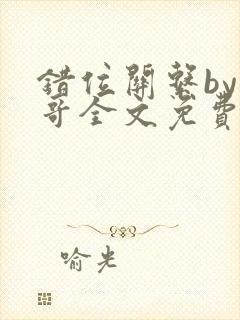 錯位關繫by
哥全文免費
喻光